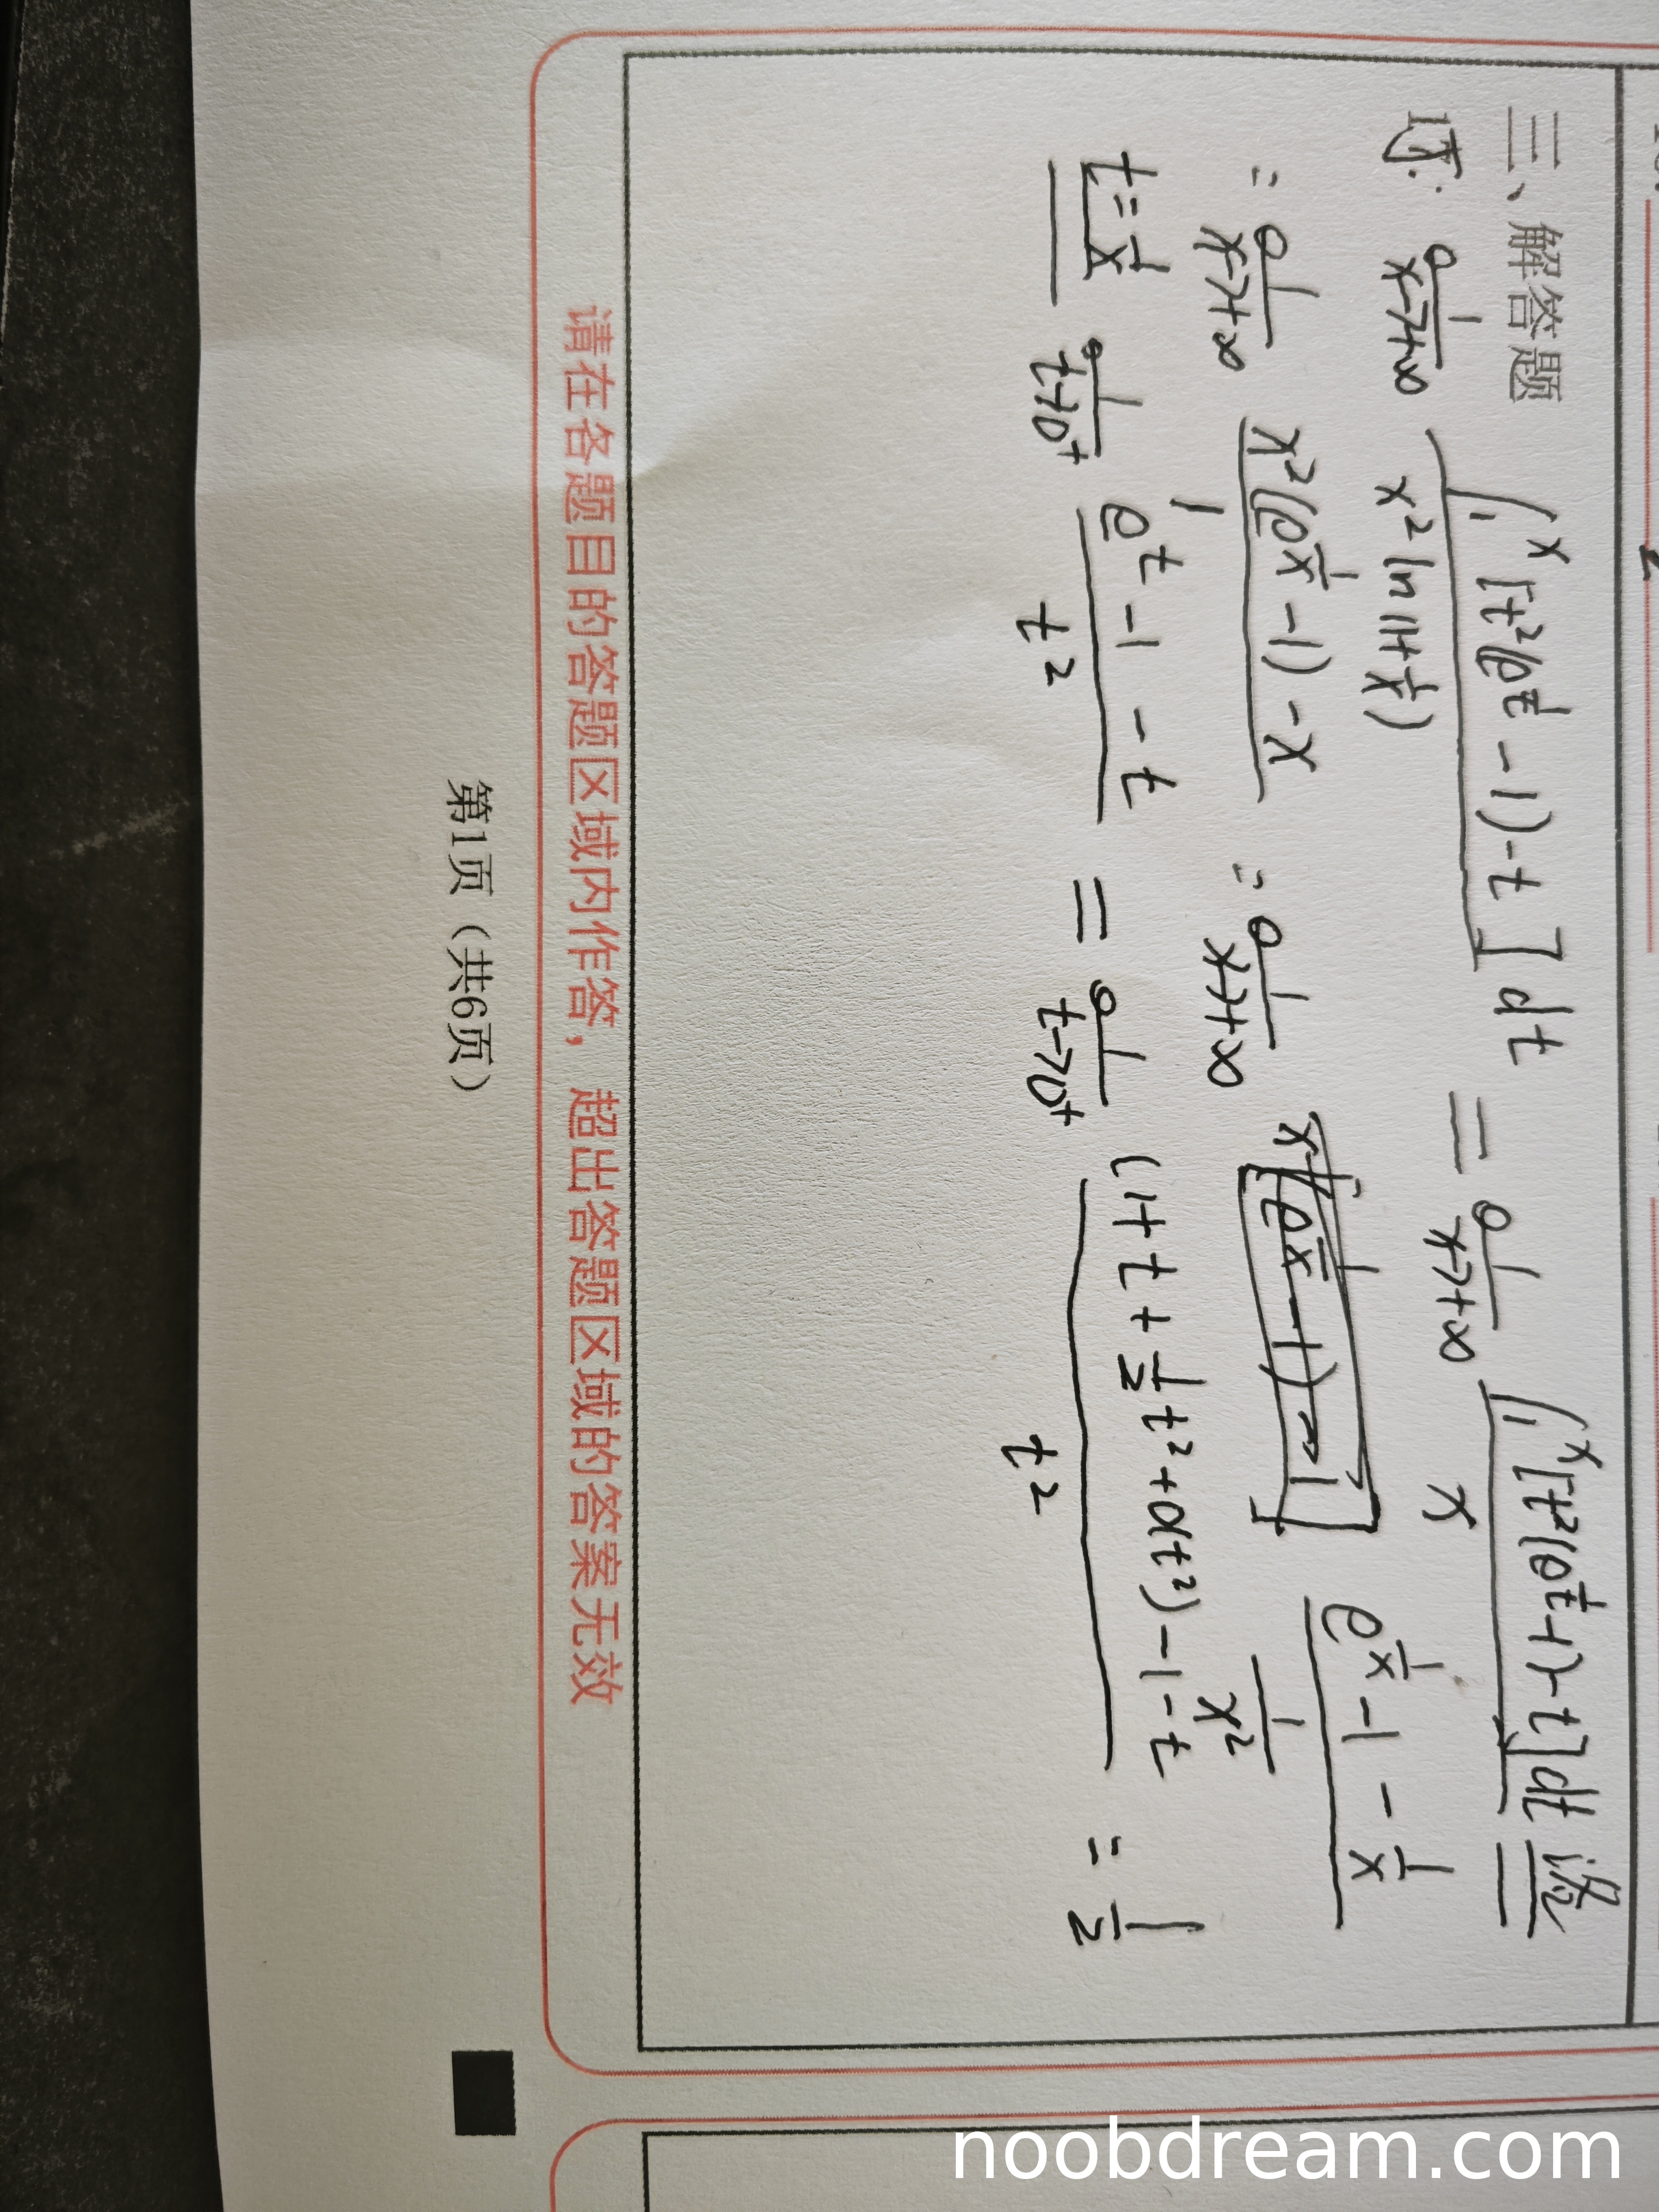 三、解答题
15. lim x→+∞ ∫₁ˣ [t²(e^(1/t) - 1) - t] dt / x² ln(1+1/x) = lim x→+∞ ∫₁ˣ [t²(e^(1/t) - 1) - t] dt / x 洛
= lim x→+∞ x²(e^(1/x) - 1) - x / 1 = lim x→+∞ e^(1/x) - 1 - 1/x / 1/x²
t = 1/x lim t→0⁺ e^t - 1 - t / t² = lim t→0⁺ (1 + t + 1/2 t² + o(t²)) - 1 - t / t² = 1/2
请在各题目的答题区域内作答，超出答题区域的答案无效
第1页（共6页）
noobdream.com